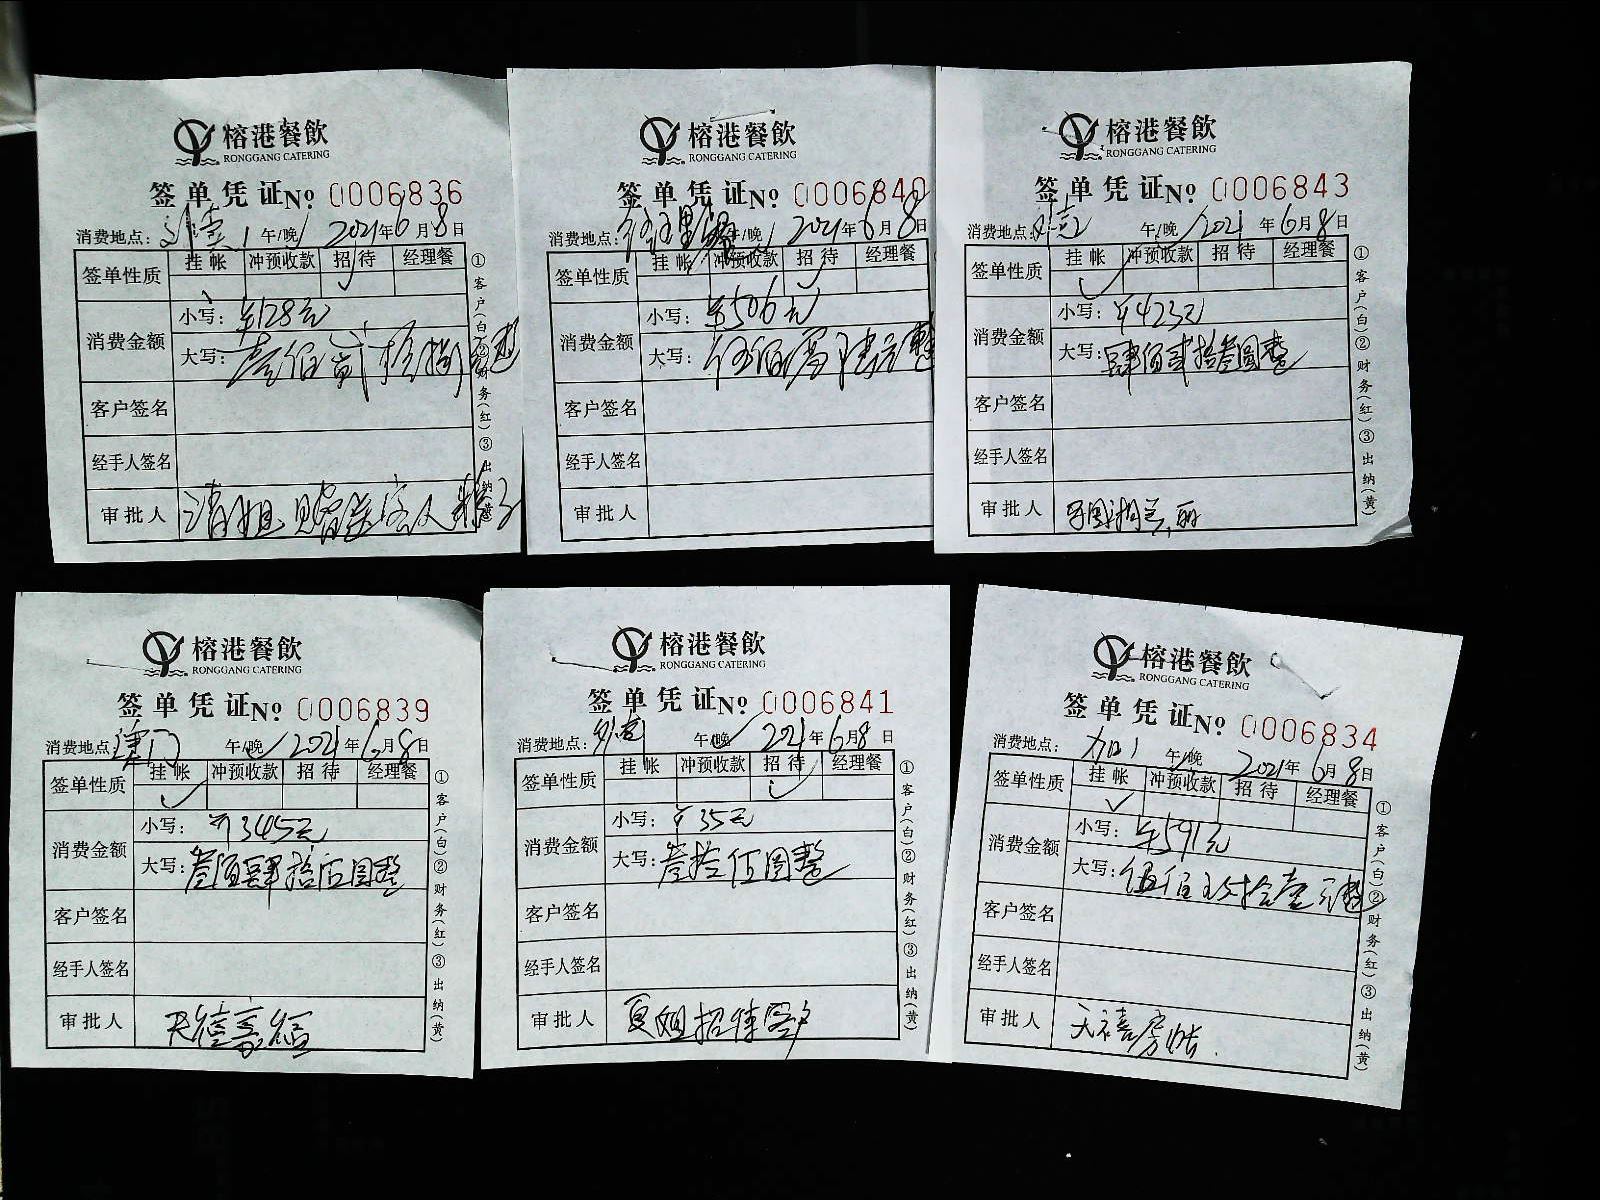 榕港餐飲
RONGGANG CATERING
签单凭证 No 0006836
消费地点: 午/晚 2021年6月8日
签单性质 挂帐 冲预收款 招待 经理餐
消费金额
小写: ¥128元
大写: 壹佰贰拾捌元整
客户签名
经手人签名
审批人
①客户(白)②财务(红)③出纳(黄)
榕港餐飲
RONGGANG CATERING
签单凭证 No 0006840
消费地点: 午/晚 2021年6月8日
签单性质 挂帐 冲预收款 招待 经理餐
消费金额
小写: ¥506元
大写: 伍佰零陆元整
客户签名
经手人签名
审批人
榕港餐飲
RONGGANG CATERING
签单凭证 No 0006843
消费地点: 午/晚 2021年6月8日
签单性质 挂帐 冲预收款 招待 经理餐
消费金额
小写: ¥423元
大写: 肆佰贰拾叁圆整
客户签名
经手人签名
审批人
①客户(白)②财务(红)③出纳(黄)
榕港餐飲
RONGGANG CATERING
签单凭证 No 0006839
消费地点: 午/晚 2021年6月8日
签单性质 挂帐 冲预收款 招待 经理餐
消费金额
小写: ¥345元
大写: 叁佰肆拾伍圆整
客户签名
经手人签名
审批人
①客户(白)②财务(红)③出纳(黄)
榕港餐飲
RONGGANG CATERING
签单凭证 No 0006841
消费地点: 午/晚 2021年6月8日
签单性质 挂帐 冲预收款 招待 经理餐
消费金额
小写: ¥35元
大写: 叁拾伍圆整
客户签名
经手人签名
审批人 夏姐招待客户
①客户(白)②财务(红)③出纳(黄)
榕港餐飲
RONGGANG CATERING
签单凭证 No 0006834
消费地点: 午/晚 2021年6月8日
签单性质 挂帐 冲预收款 招待 经理餐
消费金额
小写: ¥591元
大写: 伍佰玖拾壹元整
客户签名
经手人签名
审批人 天禧房帐
①客户(白)②财务(红)③出纳(黄)